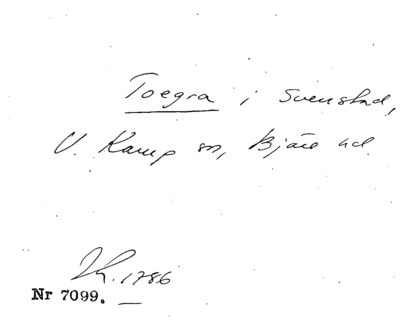 Toegra i Svenstad,
V. Karup sn, Bjäre hd.
1786
Nr 7099.